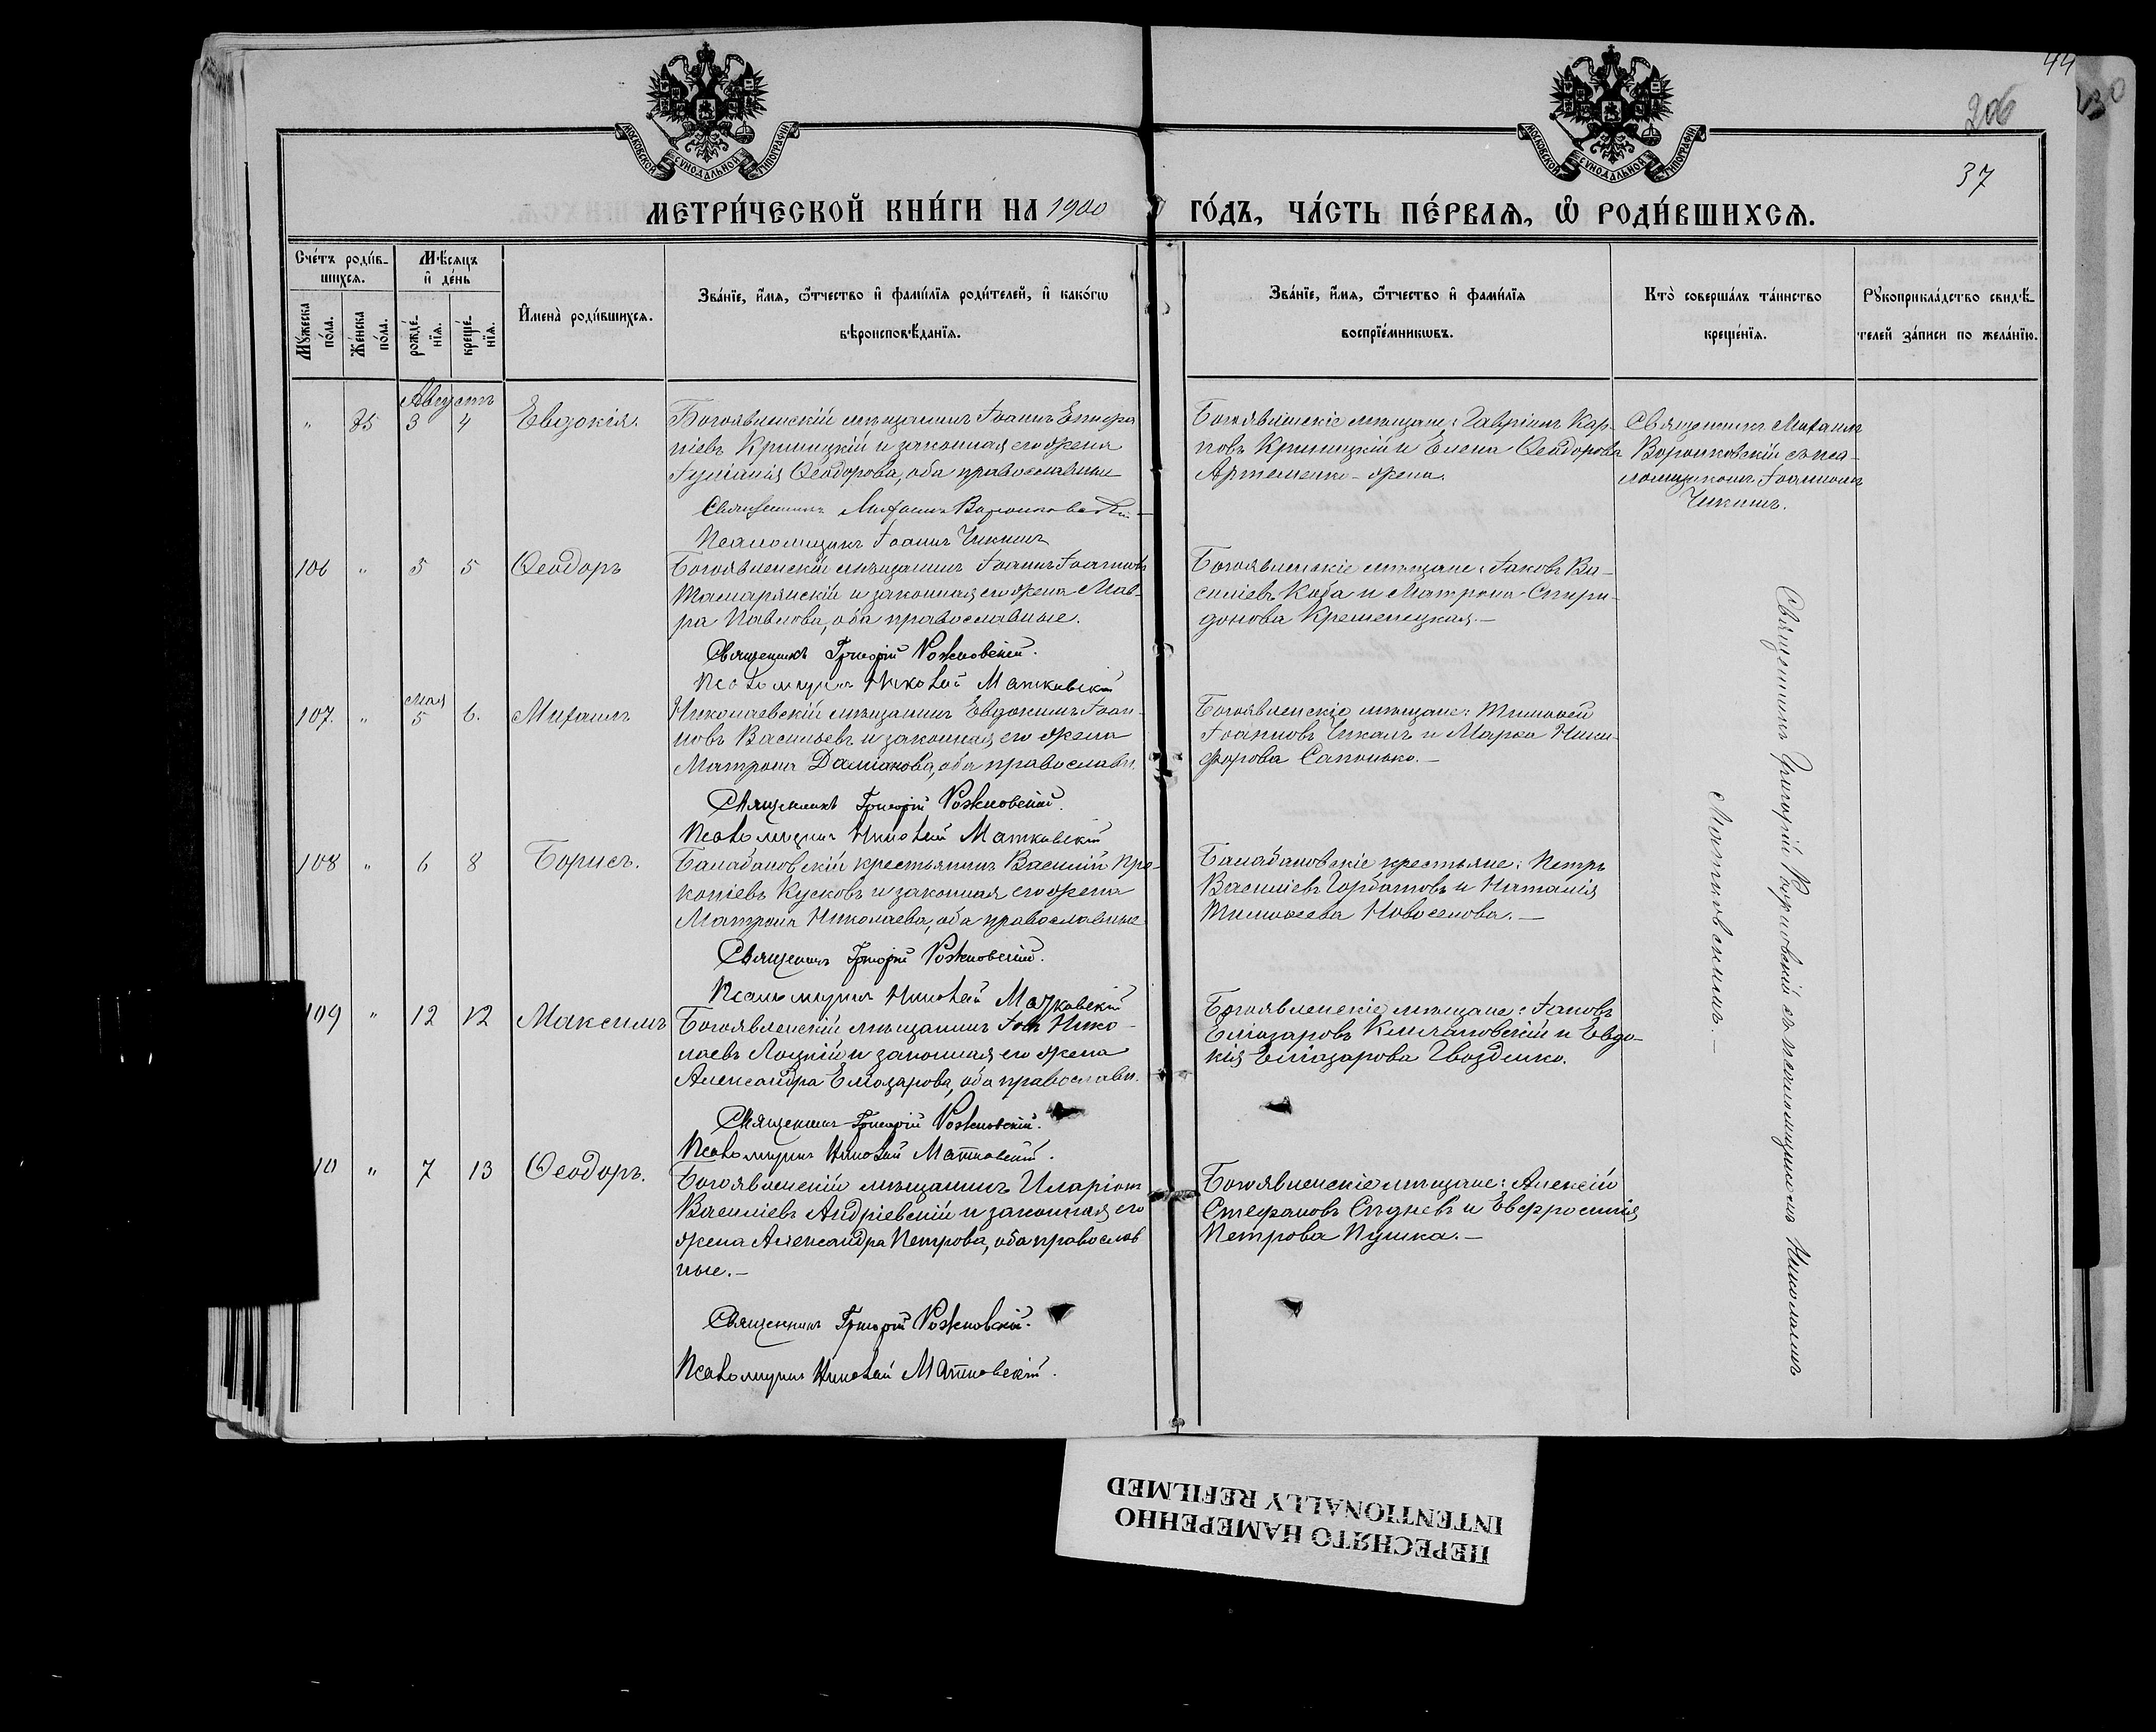 44
206
230
37
МОСКОВСКОЙ СѴНОДАЛЬНОЙ ТИПОГРАФІИ
МОСКОВСКОЙ СѴНОДАЛЬНОЙ ТИПОГРАФІИ
МЕТРИ́ЧЕСКОЙ КНИ́ГИ НА 1900 ГО́ДЪ, ЧА́СТЬ ПЕ́РВАЯ, Ѡ РОДИ́ВШИХСѦ.
Сче́тъ роди́в-
шихсѧ.
Мѣ́сяцъ
и де́нь
Мꙋ́жеска
по́ла.
Же́нска
по́ла.
рожде́-
нїѧ.
креще́-
нїѧ.
Имена̀ роди́вшихсѧ.
Зва́нїе, и́мѧ, ѻ҆́тчество и фами́лїѧ роди́телей, и како́гѡ
вѣроисповѣ́данїѧ.
Зва́нїе, и́мѧ, ѻ҆́тчество и фами́лїѧ
воспрїе́мникѡвъ.
Кто̀ соверша́лъ та́инство
креще́нїѧ.
Рꙋкоприкла́дство свидѣ́-
телей за́писи по жела́нїю.
Августъ
" 85 3 4 Евдокія.
Богоявленскій мѣщанинъ Іоаннъ Епифа
ніевъ Криницкій и законная его жена
Іуліанія Ѳеодорова, оба православные
Священникъ Михаилъ Воронковскій
Псаломщикъ Іоаннъ Чикинъ
Богоявленскіе мѣщане: Гавріилъ Кар-
повъ Криницкій и Елена Ѳеодорова
Артеменко - жена.
Священникъ Михаилъ
Воронковскій съ пса-
ломщикомъ Іоанномъ
Чикинъ.
106 " 5 5 Ѳеодоръ
Богоявленскій мѣщанинъ Іоаннъ Іоанновъ
Тамарянскій и законная его жена Мав-
ра Павлова, оба православные.
Священникъ Григорій
Псаломщикъ Николай Матковскій
Богоявленскіе мѣщане: Іаковъ Ва-
силіевъ Коба и Матрона Спири-
донова Кременецкая.—
мая
107. " 5 6. Михаилъ
Николаевскій мѣщанинъ Евдокимъ Іоан-
новъ Васильевъ и законная его жена
Матрона Даміанова, оба православн.
Священникъ Григорій
Псаломщикъ Николай Матковскій
Богоявленскіе мѣщане: Тимоѳей
Іоанновъ Чикалъ и Марѳа Ники-
форова Сапонько.—
108 " 6 8 Борисъ.
Балабановскій крестьянинъ Василій Про-
копіевъ Кусковъ и законная его жена
Матрона Николаева, оба православные
Священникъ Григорій
Псаломщикъ Николай Матковскій
Балабановскіе крестьяне: Петръ
Василіевъ Горбатовъ и Наталія
Тимоѳеева Новоселова.—
109 " 12 12 Максимъ
Богоявленскій мѣщанинъ Іовъ Нико-
лаевъ Лоцкій и законная его жена
Александра Елеазарова, оба православн.
Священникъ Григорій
Псаломщикъ Николай Матковскій.
Богоявленскіе мѣщане: Іаковъ
Еліазаровъ и Евдо-
кія Еліазарова Гвозденко.
10 " 7 13 Ѳеодоръ.
Богоявленскій мѣщанинъ Иларіонъ
Василіевъ Андріевскій и законная его
жена Александра Петрова, оба православ
ные.—
Священникъ Григорій
Псаломщикъ Николай Матковскій.
Богоявленскіе мѣщане: Алексій
Стефановъ Сѣдневъ и Евфросинія
Петрова Пушка.—
Священникъ Григорій съ псаломщикомъ Николаемъ
Матковскимъ.—
ПЕРЕСНЯТО НАМЕРЕННО
INTENTIONALLY REFILMED